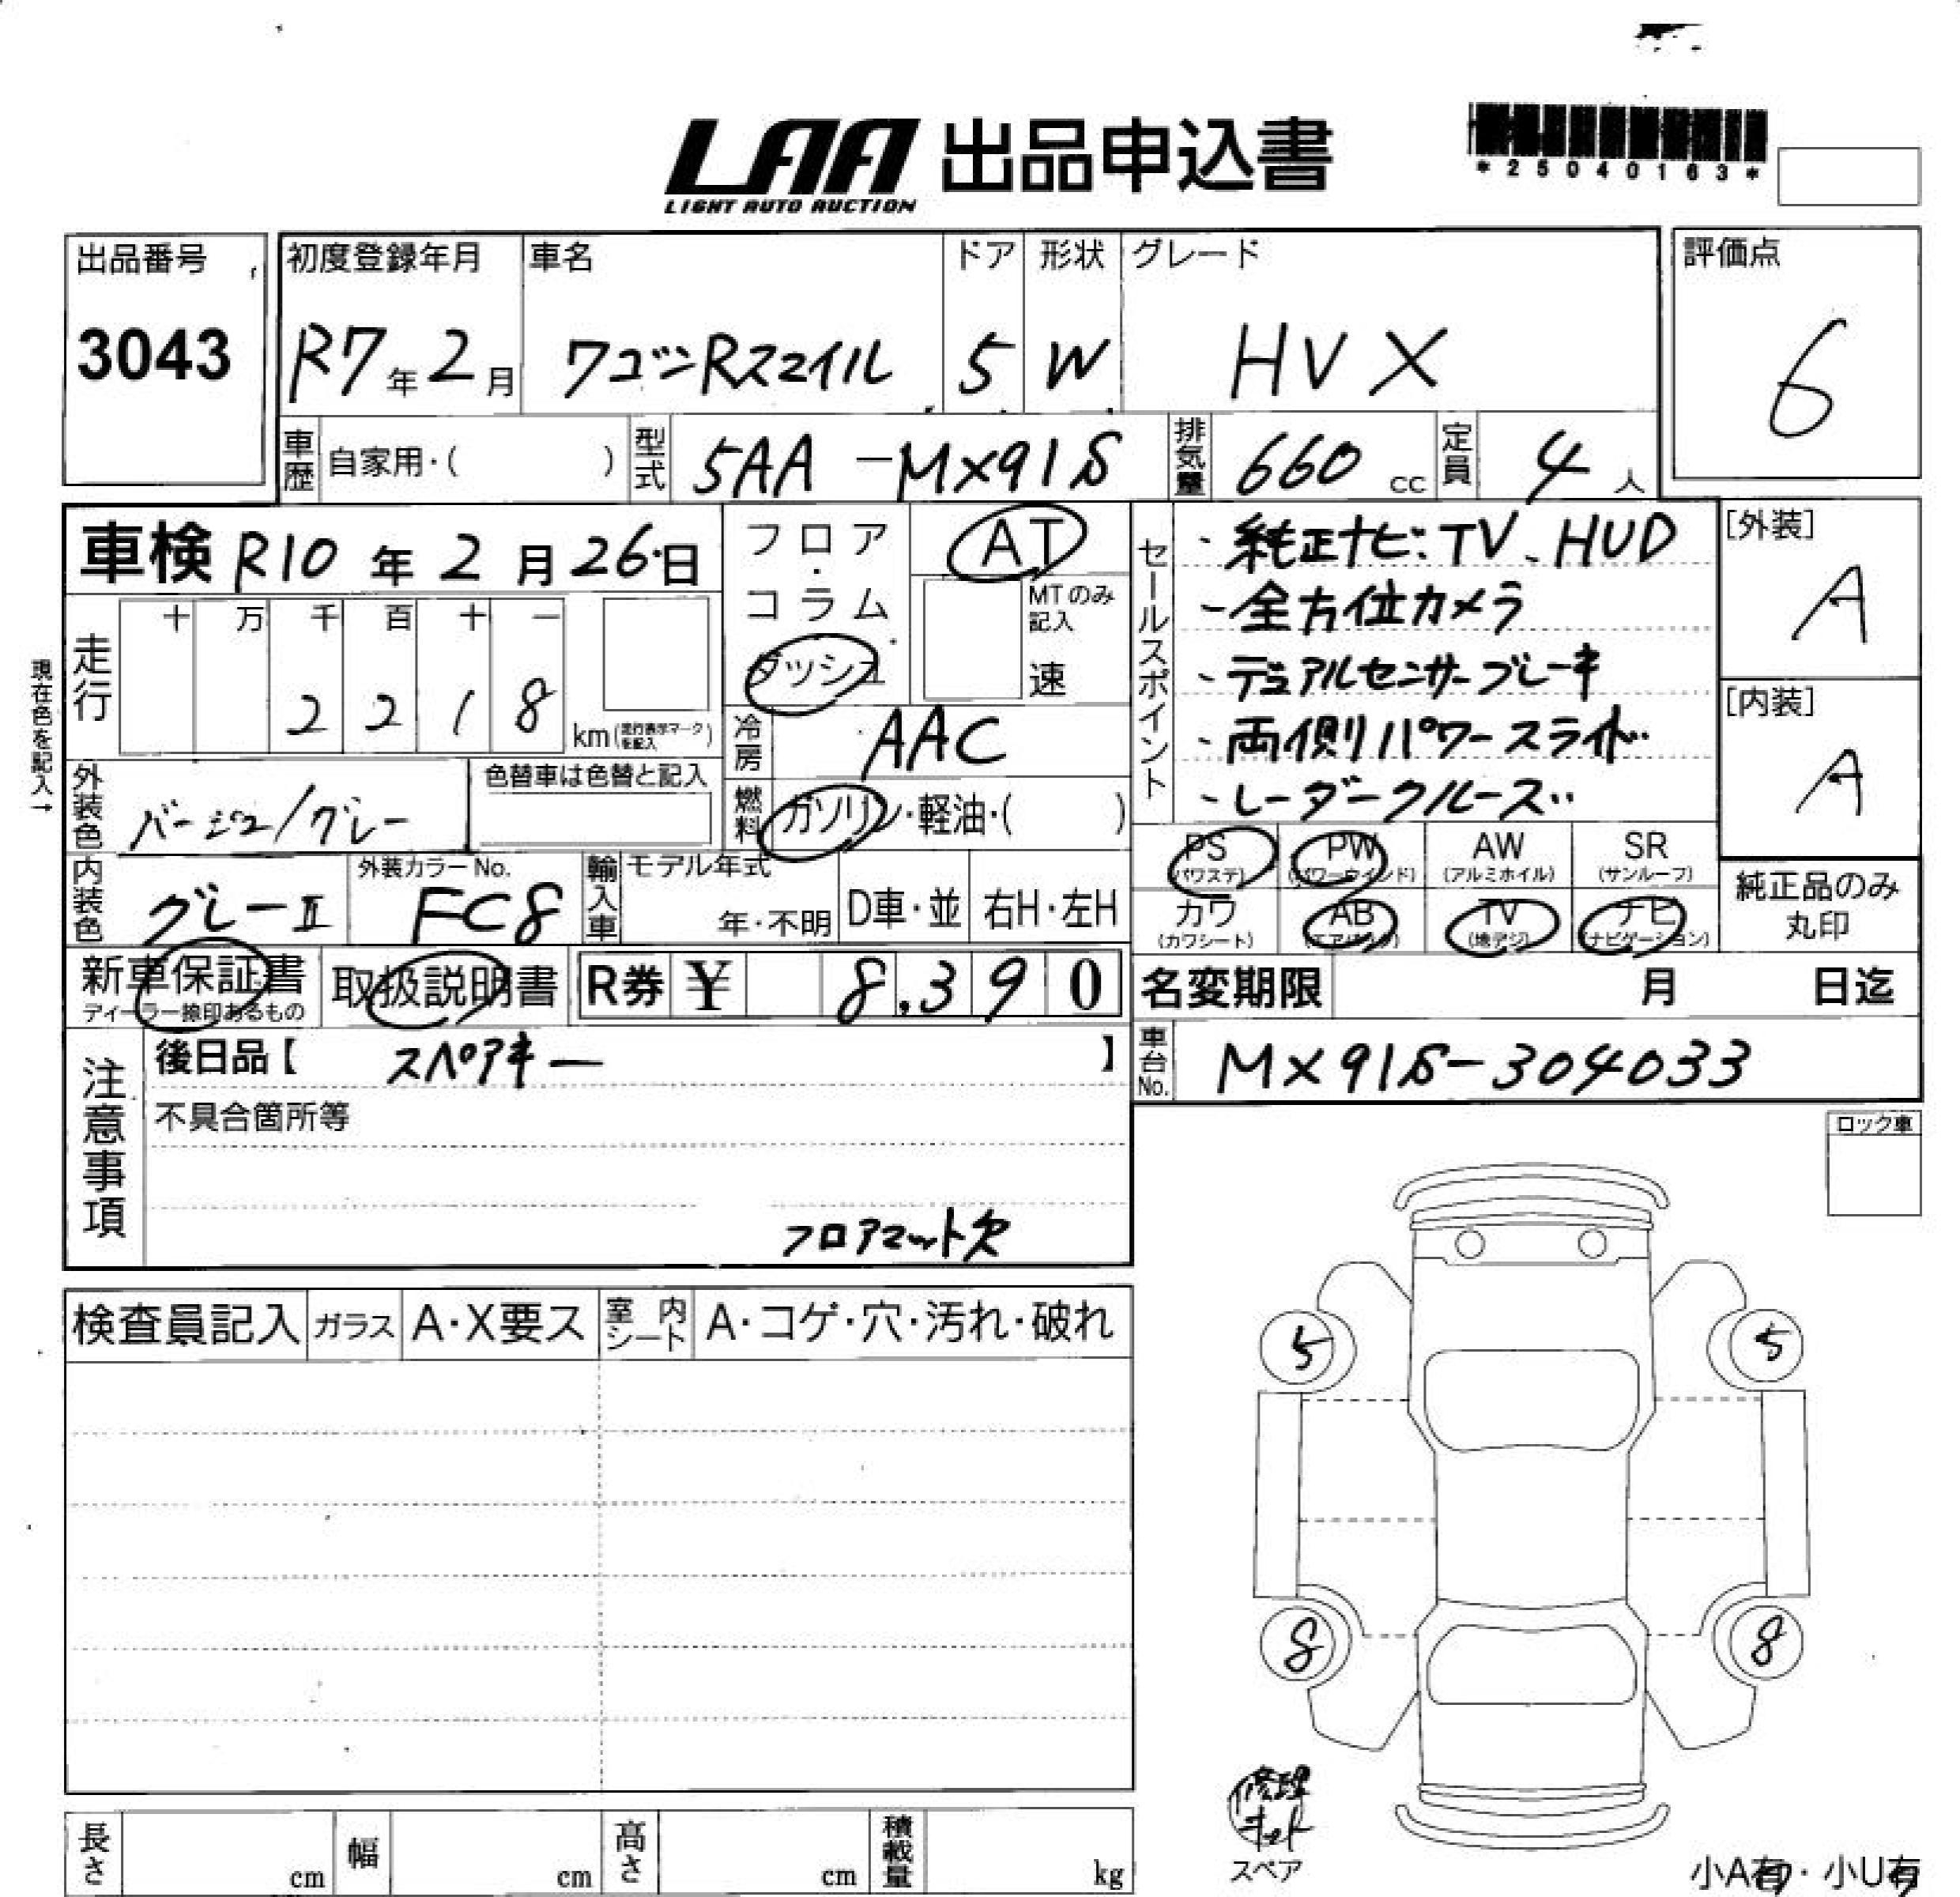 LAA 出品申込書
LIGHT AUTO AUCTION
*25040163*
出品番号
3043
初度登録年月
R7年2月
車名
ワゴンRスマイル
ドア
5
形状
W
グレード
HV X
評価点
6
車歴
自家用・( )
型式
5AA-MX91S
排気量
660 cc
定員
4 人
車検 R10年2月26日
フロア・コラム・ダッシュ
AT
MTのみ記入
速
現在色を記入→
走行
十 万 千 百 十 一
2 2 1 8
km(走行表示マークを記入)
冷房
AAC
外装色
バージュ/グレー
色替車は色替と記入
燃料
ガソリン・軽油・( )
内装色
グレーII
外装カラーNo.
FC8
輸入車
モデル年式
年・不明
D車・並
右H・左H
セールスポイント
・純正ナビ、TV、HUD
-全方位カメラ
・デュアルセンサーブレーキ
・両側パワースライド
・レーダークルーズ
[外装]
A
[内装]
A
PS
(パワステ)
PW
(パワーウインド)
AW
(アルミホイル)
SR
(サンルーフ)
カワ
(カワシート)
AB
(エアバック)
TV
(地デジ)
ナビ
(ナビゲーション)
純正品のみ
丸印
新車保証書
ディーラー捺印あるもの
取扱説明書
R券 ¥ 8,390
名変期限 月 日迄
車台No.
MX91S-304033
注意事項
後日品【 スペアキー 】
不具合箇所等
フロアマット欠
ロック車
検査員記入
ガラス
A・X要ス
室内シート
A・コゲ・穴・汚れ・破れ
5
5
8
8
修理
キット
スペア
長さ cm
幅 cm
高さ cm
積載量 kg
小A有・小U有